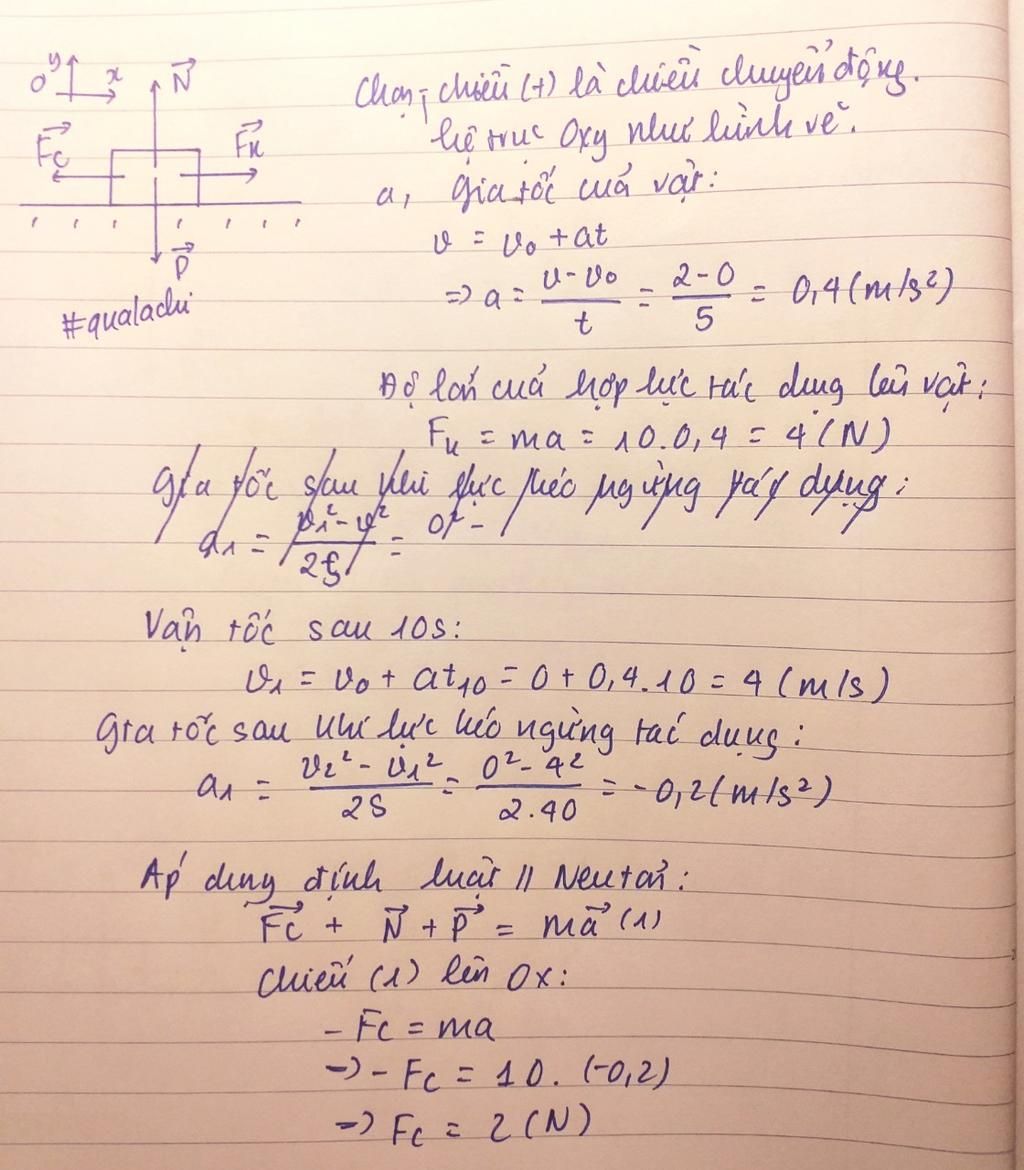 y
O x
N⃗
F⃗c F⃗k
P⃗
#qualachi
Chọn: chiều (+) là chiều chuyển động.
hệ trục Oxy như hình vẽ.
a, Gia tốc của vật:
v = v₀ + at
=> a = (v - v₀)/t = (2 - 0)/5 = 0,4 (m/s²)
Độ lớn của hợp lực tác dụng lên vật:
Fk = ma = 10.0,4 = 4 (N)
Gia tốc sau khi lực kéo ngừng tác dụng:
a₁ = (v₁² - v²)/2S = 0² -
Vận tốc sau 10s:
v₁ = v₀ + at₁₀ = 0 + 0,4.10 = 4 (m/s)
Gia tốc sau khi lực kéo ngừng tác dụng:
a₁ = (v₂² - v₁²)/2S = (0² - 4²)/2.40 = -0,2 (m/s²)
Áp dụng định luật II Neutơn:
F⃗c + N⃗ + P⃗ = ma⃗ (1)
Chiếu (1) lên Ox:
- Fc = ma
-> - Fc = 10. (-0,2)
-> Fc = 2 (N)